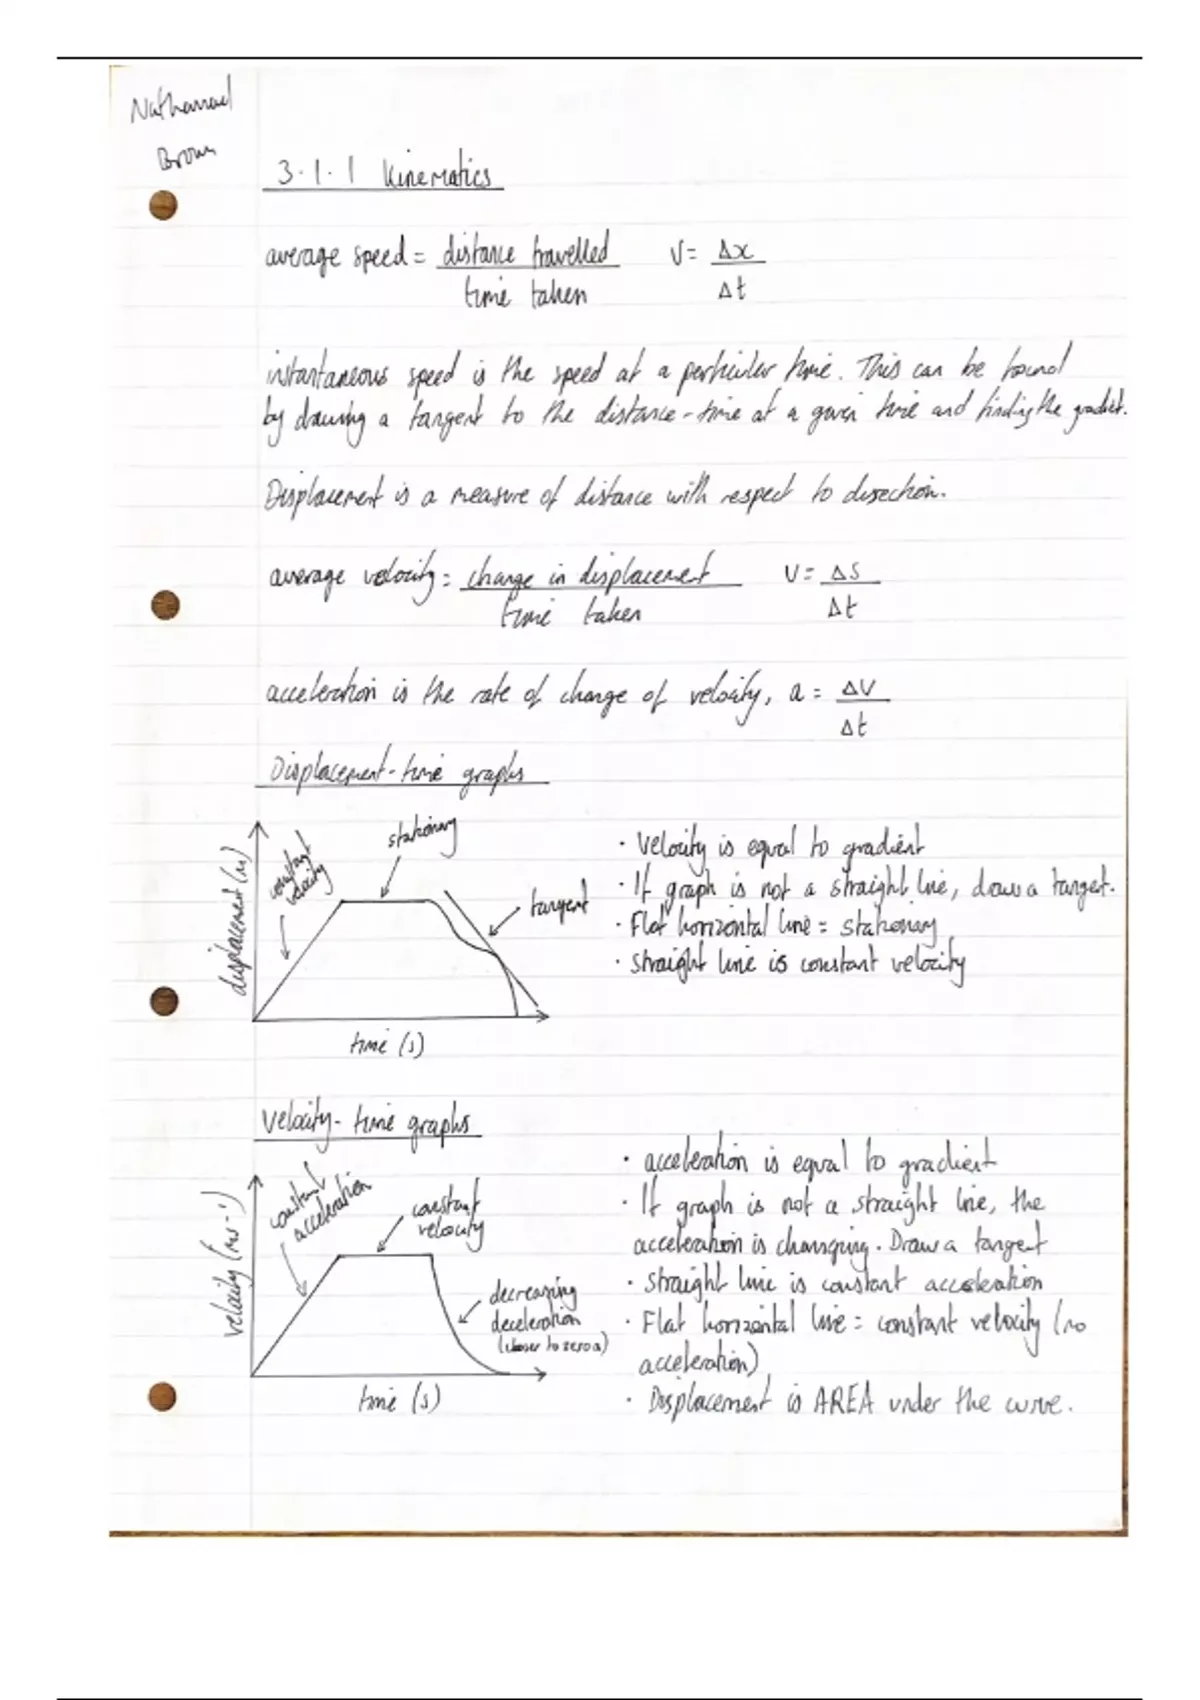 Nathanael
Brown
3.1.1 Kinematics
average speed = distance travelled / time taken V = Δx / Δt
instantaneous speed is the speed at a particular time. This can be found
by drawing a tangent to the distance-time at a given time and finding the gradient.
Displacement is a measure of distance with respect to direction.
average velocity = change in displacement / time taken V = Δs / Δt
acceleration is the rate of change of velocity, a = ΔV / Δt
Displacement-time graphs
displacement (m)
constant
velocity
stationary
tangent
time (s)
· Velocity is equal to gradient
· If graph is not a straight line, draw a tangent.
· Flat horizontal line = stationary
· Straight line is constant velocity
Velocity-time graphs
velocity (ms-1)
constant
acceleration
constant
velocity
decreasing
deceleration
(closer to zero a)
time (s)
· acceleration is equal to gradient
· If graph is not a straight line, the
acceleration is changing. Draw a tangent
· Straight line is constant acceleration
· Flat horizontal line = constant velocity (no
acceleration)
· Displacement is AREA under the curve.